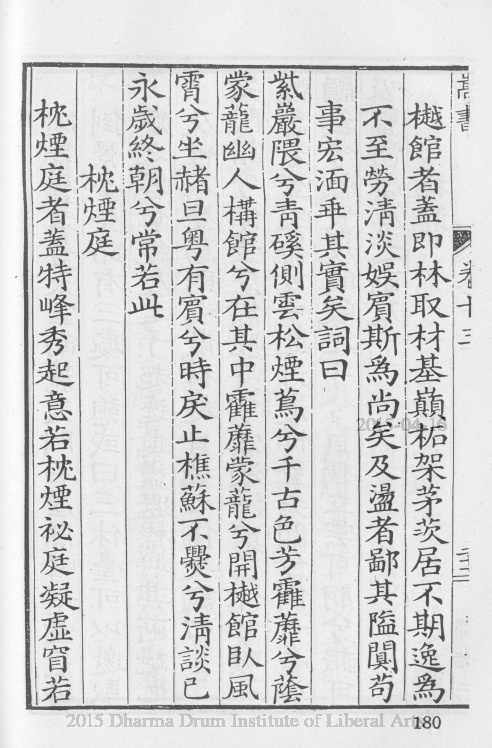 嵩書 卷十三
樾館者蓋即林取材基巔柘架茅茨居不期逸為
不至勞清淡娛賓斯為尚矣及盪者鄙其隘闃苟
事宏湎乖其實矣詞曰
紫巖隈兮青磎側雲松煙蔦兮千古色芳靃蘼兮蔭
蒙蘢幽人構館兮在其中靃蘼蒙蘢兮開樾館臥風
霄兮坐赭旦粵有賓兮時戾止樵蘇不爨兮清談已
永歲終朝兮常若此
枕煙庭
枕煙庭者蓋特峰秀起意若枕煙祕庭凝虛窅若
2015-04-16
2015 Dharma Drum Institute of Liberal Arts
180